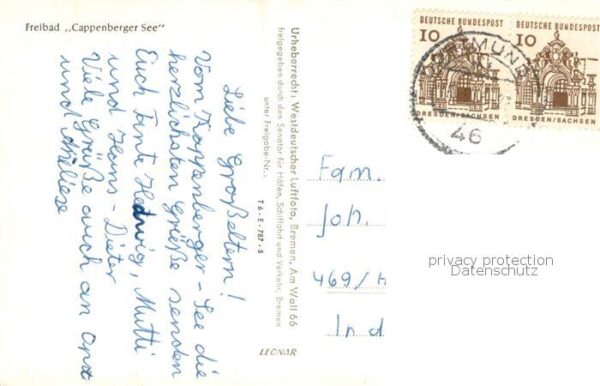 Freibad „Cappenberger See"
Liebe Großeltern!
Vom Kappenberger-See die
herzlichsten Grüße senden
Euch Tante Hedwig, Mutti
und Hans-Dieter
Viele Grüße auch an Onkel
und Anliese
Urheberrecht: Westdeutscher Luftfoto, Bremen, Am Wall 66
freigegeben durch den Senator für Häfen, Schiffahrt und Verkehr, Bremen
unter Freigabe-Nr.:
T 6 - E - 787 - 5
LEONAR
DEUTSCHE BUNDESPOST
10
DRESDEN/SACHSEN
DEUTSCHE BUNDESPOST
10
DRESDEN/SACHSEN
DORTMUND
46
Fam.
Joh.
469/H
In d
privacy protection
Datenschutz